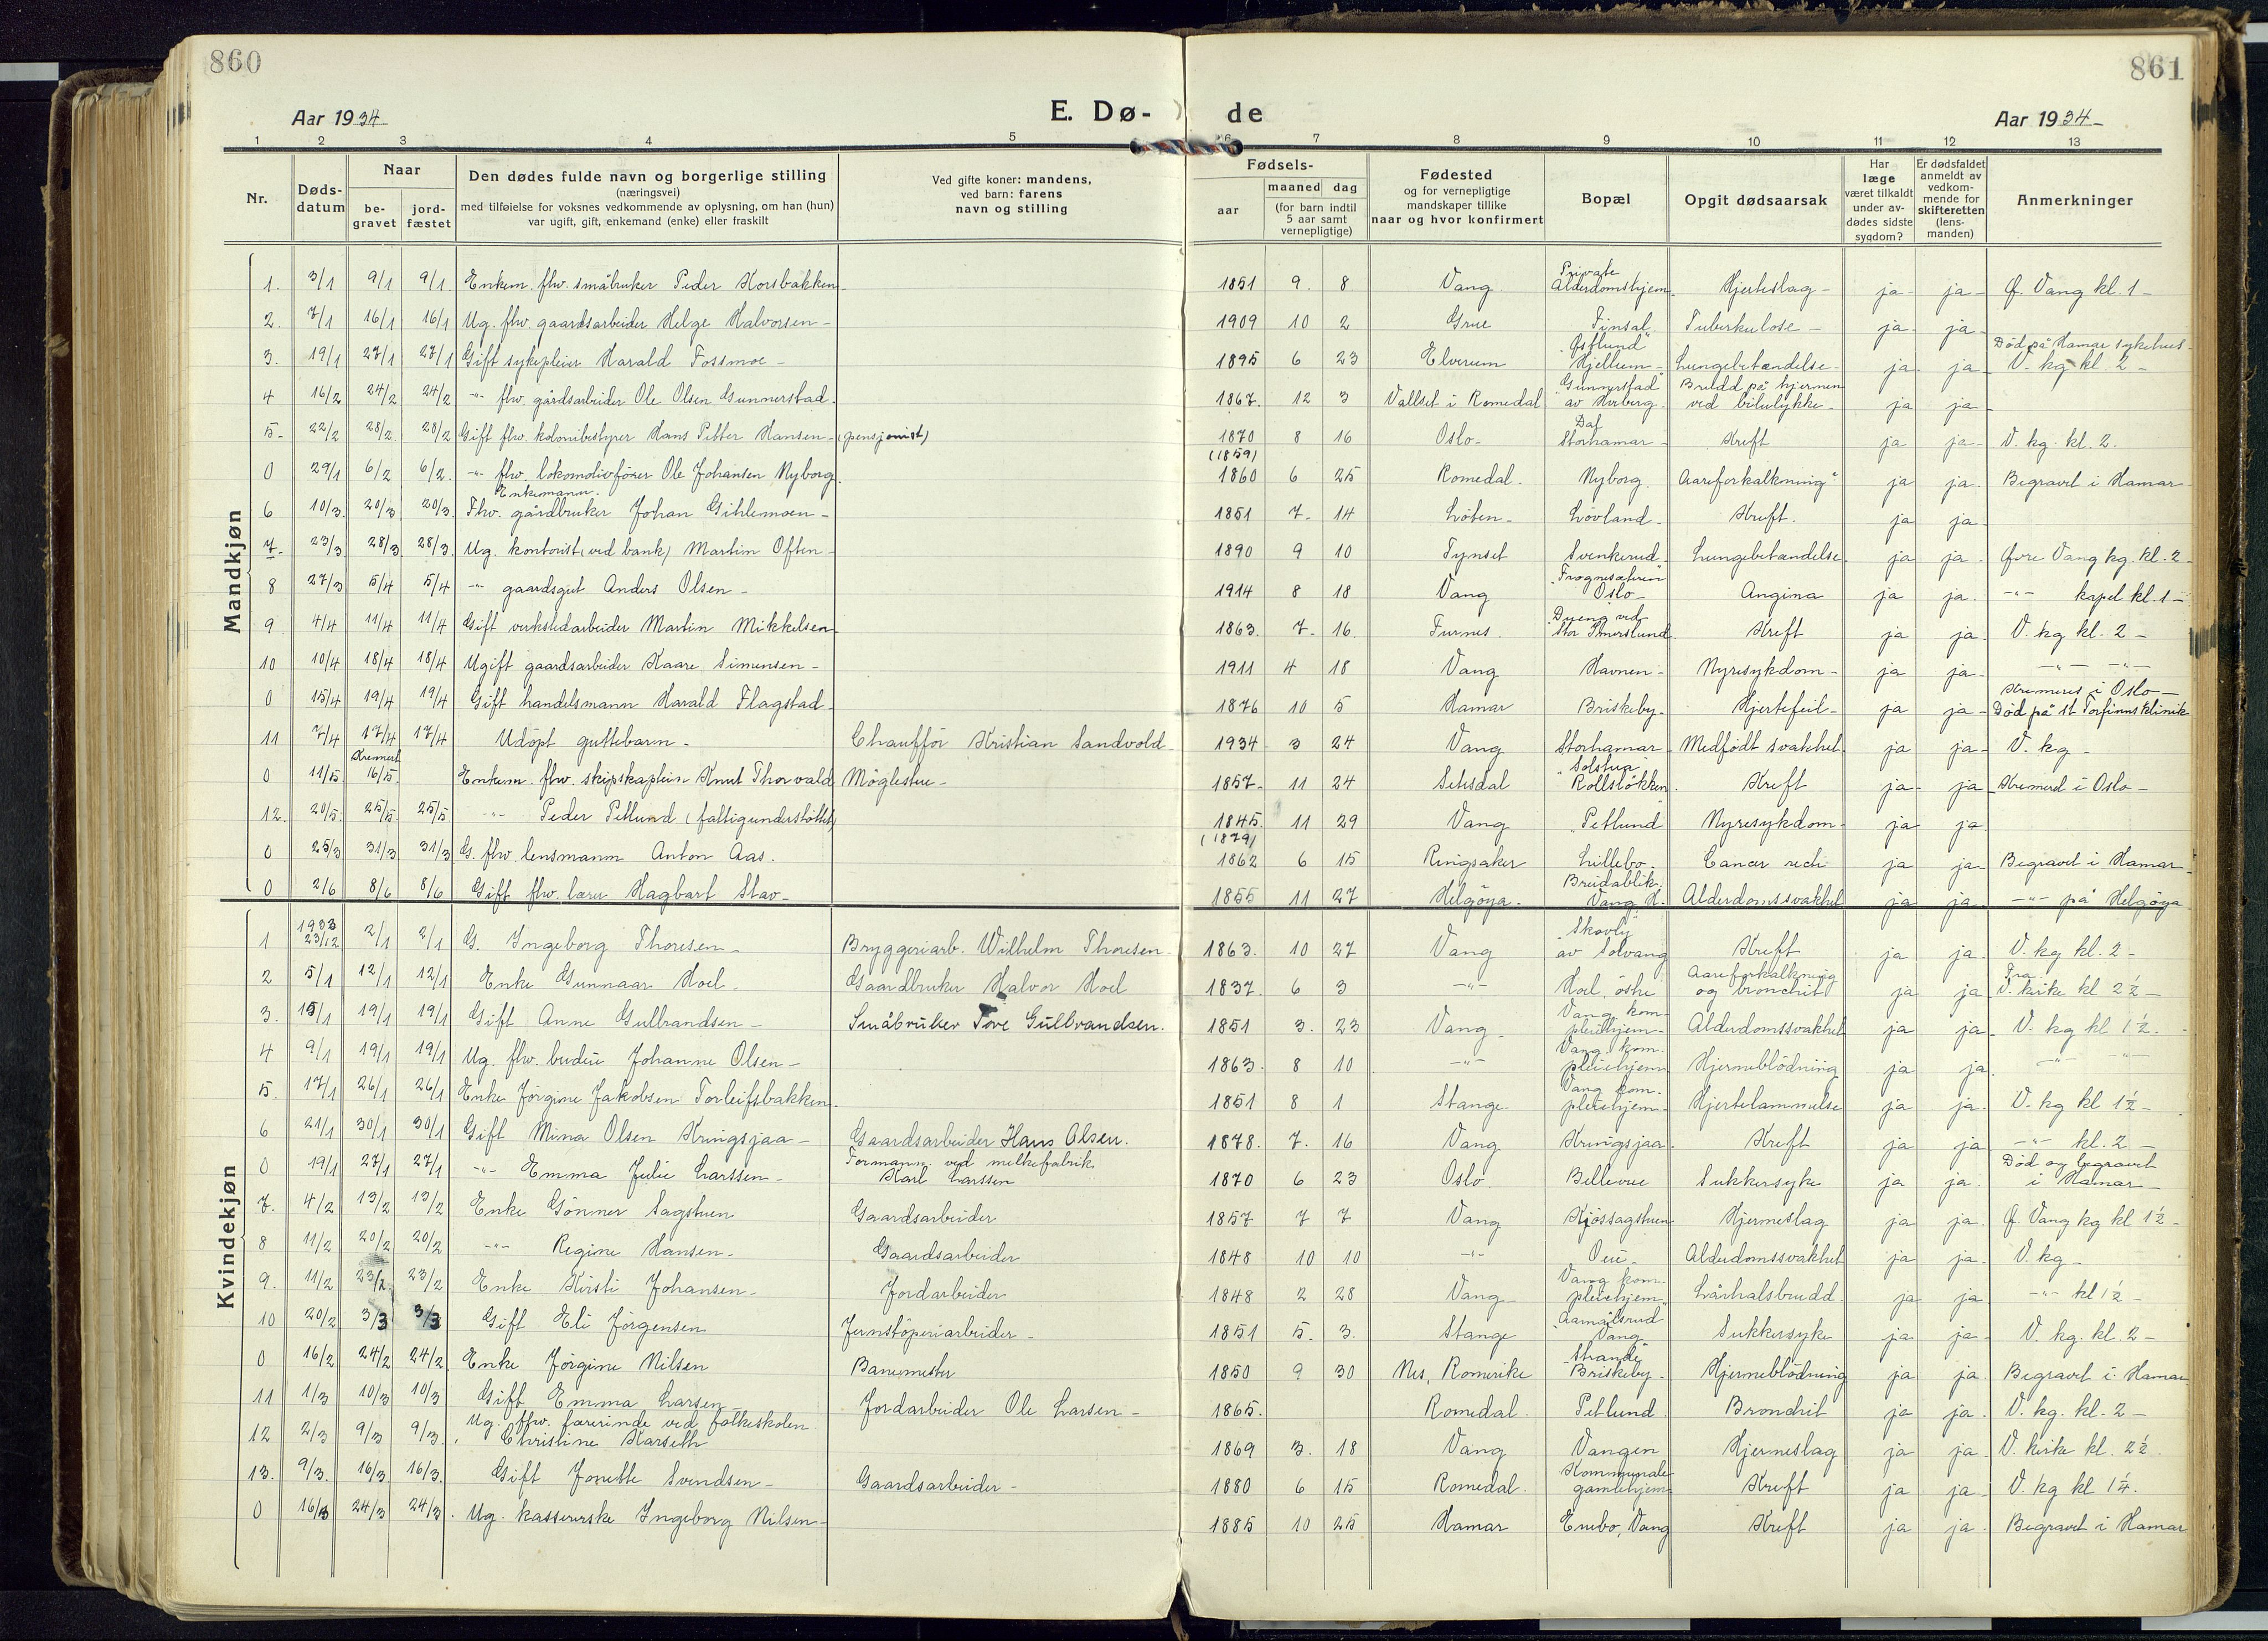 860
861
Aar 1934
E. Dø-
de
Aar 1934 -
1 2 3 4 5 6 7 8 9 10 11 12 13
Nr.
Døds-
datum
Naar
be-
gravet
jord-
fæstet
Den dødes fulde navn og borgerlige stilling
(næringsvei)
med tilføielse for voksnes vedkommende av oplysning, om han (hun)
var ugift, gift, enkemand (enke) eller fraskilt
Ved gifte koner: mandens,
ved barn: farens
navn og stilling
Fødsels-
aar
maaned dag
(for barn indtil
5 aar samt
vernepligtige)
Fødested
og for vernepligtige
mandskaper tillike
naar og hvor konfirmert
Bopæl
Opgit dødsaarsak
Har
læge
været tilkaldt
under av-
dødes sidste
sygdom?
Er dødsfaldet
anmeldt av
vedkom-
mende for
skifteretten
(lens-
manden)
Anmerkninger
Mandkjøn
1. 3/1 9/1 9/1. Enkem. fhv. småbruker Peder Korsbakken - 1851 9. 8 Vang Private Alderdomshjem. Hjerteslag - ja - ja - Ø. Vang kl. 1 -
2. 7/1 16/1 16/1 Ug. fhv. gaardsarbeider Helge Halvorsen - 1909 10 2 Grue Finsal. Tuberkulose - ja - ja -
3. 19/1 27/1 27/1 Gift sykepleier Harald Fossmoe - 1895 6 23 Elverum "Østlund" Hjellum - Lungebetændelse - ja - ja - Død på Hamar sykehus - V. kg kl. 2 -
4 16/2 24/2 24/2 -"- fhv. gårdsarbeider Ole Olsen Gunnerstad. 1867. 12 3 Vallset i Romedal "Gunnerstad" av Hverberg. Brudd på hjernen ved bilulykke - ja ja -
5 - 22/2 28/2. 28/2 Gift fhv. kolonibestyrer Hans Petter Hansen - (pensjonist) 1870 8 16 Oslo - Dal Storhamar - Kreft ja ja - V. kg. kl. 2.
0 29/1 6/2 6/2. -"- fhv. lokomotivfører Ole Johansen Nyborg. (1859) 1860 6 25 Romedal. Nyborg. Aareforkalkning" ja ja. Begravet i Hamar -
6 10/3 20/3 20/3. Enkemann. Fhv. gårdbruker Johan Gihlemoen - 1851 7 - 14 Løten - Løvland - Kreft. ja ja -
7 - 23/3 28/3 28/3. Ug. kontorist (ved bank) Martin Often - 1890 9 10 Tynset Svenkerud - Lungebetændelse. ja ja. Øvre Vang kg. kl. 2 -
8 27/3 5/4 5/4 -"- gaardsgut Anders Olsen - 1914 8 18 Vang "Frognesæteren" Oslo - Angina ja ja. -"- kapel kl. 1 -
9. 4/4 11/4 11/4 Gift verkstedarbeider Martin Mikkelsen - 1863. 7 - 16. Furnes. Dueng ved Stor Imerslund Kreft ja ja. V. kg kl. 2 -
10 10/4 18/4 18/4 Ugift gaardsarbeider Kaare Simensen - 1911 4 18 Vang Havnen - Nyresykdom - ja ja - -"- -"-
0 15/4 19/4 19/4 Gift handelsmann Harald Flagstad - 1876 10 5 Hamar Briskeby - Hjertefeil - ja ja - Kremeres i Oslo - Død på St Torfinns klinik
11 7/4 17/4 17/4 Udøpt guttebarn - Chauffør Kristian Sandvold 1934 3 24 Vang Storhamar - Medfødt svakhet. ja ja - V. kg -
0 11/5 Kremert 16/5. Enkem. fhv. skipskaptein Knut Thorvald Møglestue - 1857 - 11 24 Setesdal "Solstua" Rollsløkken. Kreft ja - ja - Kremerd i Oslo -
12. 20/5 25/5 25/5 -"- Peder Petlund (fattigunderstøttet) 1845. 11 29 Vang "Petlund" Nyresykdom. ja ja
0 25/3 31/3 31/3 G. fhv. lensmann Anton Aas. (1879) 1862 6 15 Ringsaker Lillebo - Cancer recti ja ja - Begravet i Hamar -
0 2/6 8/6 8/6 Gift fhv. lærer Hagbart Stav - 1855 11 27 Helgøya - Breidablik. Vang H. Alderdomssvakhet ja ja - -"- på Helgøya
Kvindekjøn
1 1933 23/12 2/1 2/1 G. Ingeborg Thoresen - Bryggeriarb. Wilhelm Thoresen. 1863. 10 27 Vang "Skovly av Solvang Kreft ja ja. V. kg kl. 2 -
2 5/1 12/1 12/1 Enke Gunnaar Hoel. Gaardbruker Halvor Hoel 1837. 6 3 -"- Hoel, østre Aareforkalkning og bronchit ja ja Fra V. kirke kl 2½ -
3. 15/1 19/1 19/1 Gift Anne Gulbrandsen - Småbruker Tore Gulbrandsen. 1851 3. 23 Vang - Vang kom. pleiehjem - Alderdomssvakhet ja ja - V. kg kl 1½ -
4 9/1 19/1 19/1 Ug. fhv. budeie Johanne Olsen - 1863. 8 10 -"- Vang kom. pleiehjem Hjerneblødning ja ja. -"- -"-
5. 17/1 26/1 26/1 Enke Jørgine Jakobsen Torleifsbakken. 1851 8 1 Stange. Vang kom. pleiehjem - Hjertelammelse ja ja. V. kg kl 1½ -
6 21/1 30/1 30/1 Gift Mina Olsen Kringsjaa - Gaardsarbeider Hans Olsen. 1878. 7. 16 Vang Kringsjaa. Kreft ja ja -"- kl. 2 -
0 19/1 27/1 27/1 -"- Emma Julie Larssen - Formann ved melkefabrik. Karl Larssen 1870 6 23 Oslo. Bellevue Sukkersyke ja ja. Død og begravet i Hamar -
7. 4/2 13/2 13/2 Enke Gønner Sagstuen Gaardsarbeider 1857 7 7 Vang Kjøssagstuen Hjerneslag ja ja. Ø. Vang kg kl 1½ -
8 11/2 20/2 20/2 -"- Regine Hansen - Gaardsarbeider 1848 10 10 -"- Oeu - Alderdomssvakhet ja ja - V. kg -
9. 11/2 23/2. 23/2 Enke Kirsti Johansen - Jordarbeider 1848 2 28 Vang - Vang kom. pleiehjem Lårhalsbrudd. ja ja -"- kl 1½ -
10 20/2 3/3 3/3 Gift Eli Jørgensen Jernstøperiarbeider - 1851 5. 3. Stange "Aamålsrud" Vang Sukkersyke ja ja - V. kg. kl. 2 -
0 16/2 24/2 24/2. Enke Jørgine Nilsen Banemester 1850 9 30 Nes, Romerike "Strande" Briskeby - Hjerneblødning ja ja Begravet i Hamar
11 1/3 10/3 10/3 Gift Emma Larsen - Jordarbeider Ole Larsen - 1865. Romedal. Petlund. Bronchit ja ja. V. kg. kl. 2 -
12 2/3 9/3 9/3. Ug. fhv. lærerinde ved folkeskolen. Christine Karseth 1869 3. 18 Vang Vangen Hjerneslag ja ja. V. kirke kl. 2½.
13. 9/3. 16/3 16/3. Gift Jonette Svendsen - Gaardsarbeider - 1880 6 15 Romedal. Kommunale gamlehjem Kreft ja ja - V. kg kl 1¼.
0 16/3 24/3 24/3. Ug. kassererske Ingeborg Nilsen - 1885 10 25 Hamar Enebo, Vang Kreft ja ja. Begravet i Hamar